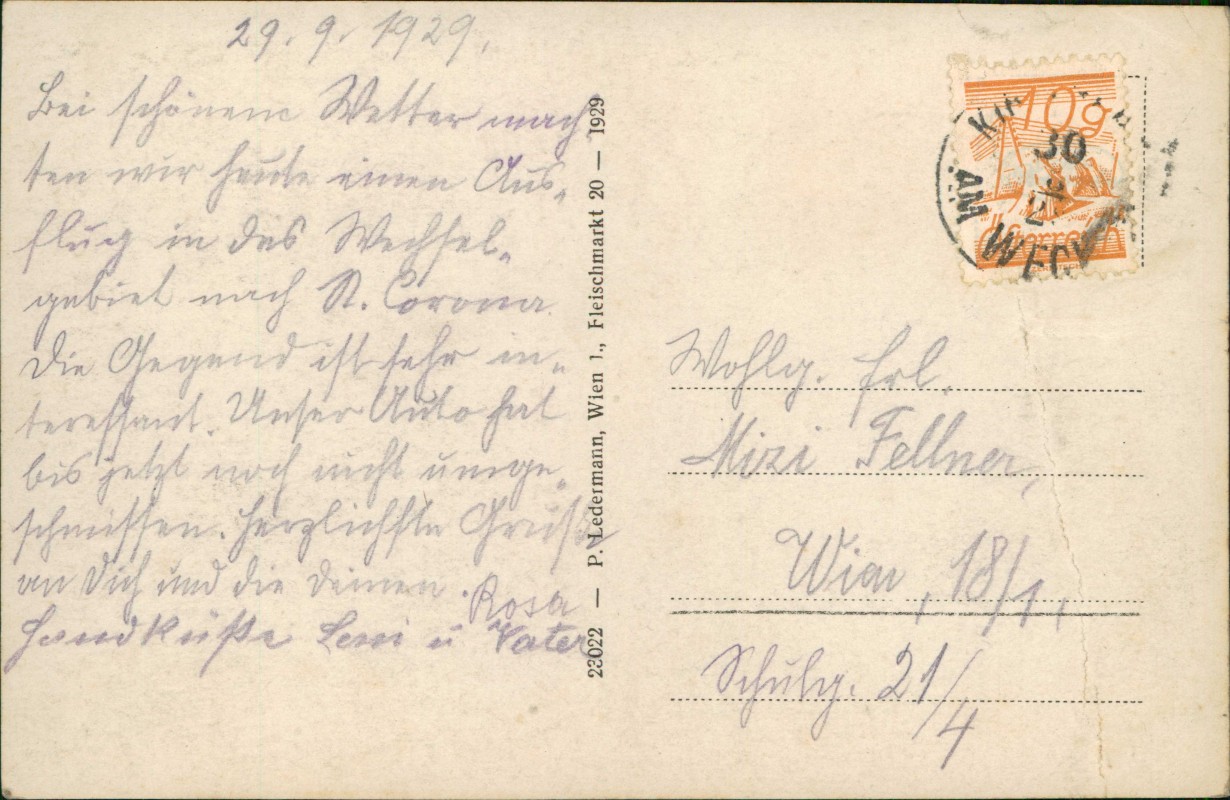 29. 9. 1929.
Bei schönem Wetter mach-
ten wir heute einen Aus-
flug in das Wechsel-
gebiet nach St. Corona.
Die Gegend ist sehr in-
teressant. Unser Auto hat
bis jetzt noch nicht umge-
schmissen. Herzlichste Grüße
an Dich und die Deinen. Rosa
Handküße Leni u Vater
23022 — P. Ledermann, Wien I., Fleischmarkt 20 — 1929
10g
30
AM WECH
Wohlg. Frl.
Mizi Fellner,
Wien, 18/1,
Schulg. 21/4